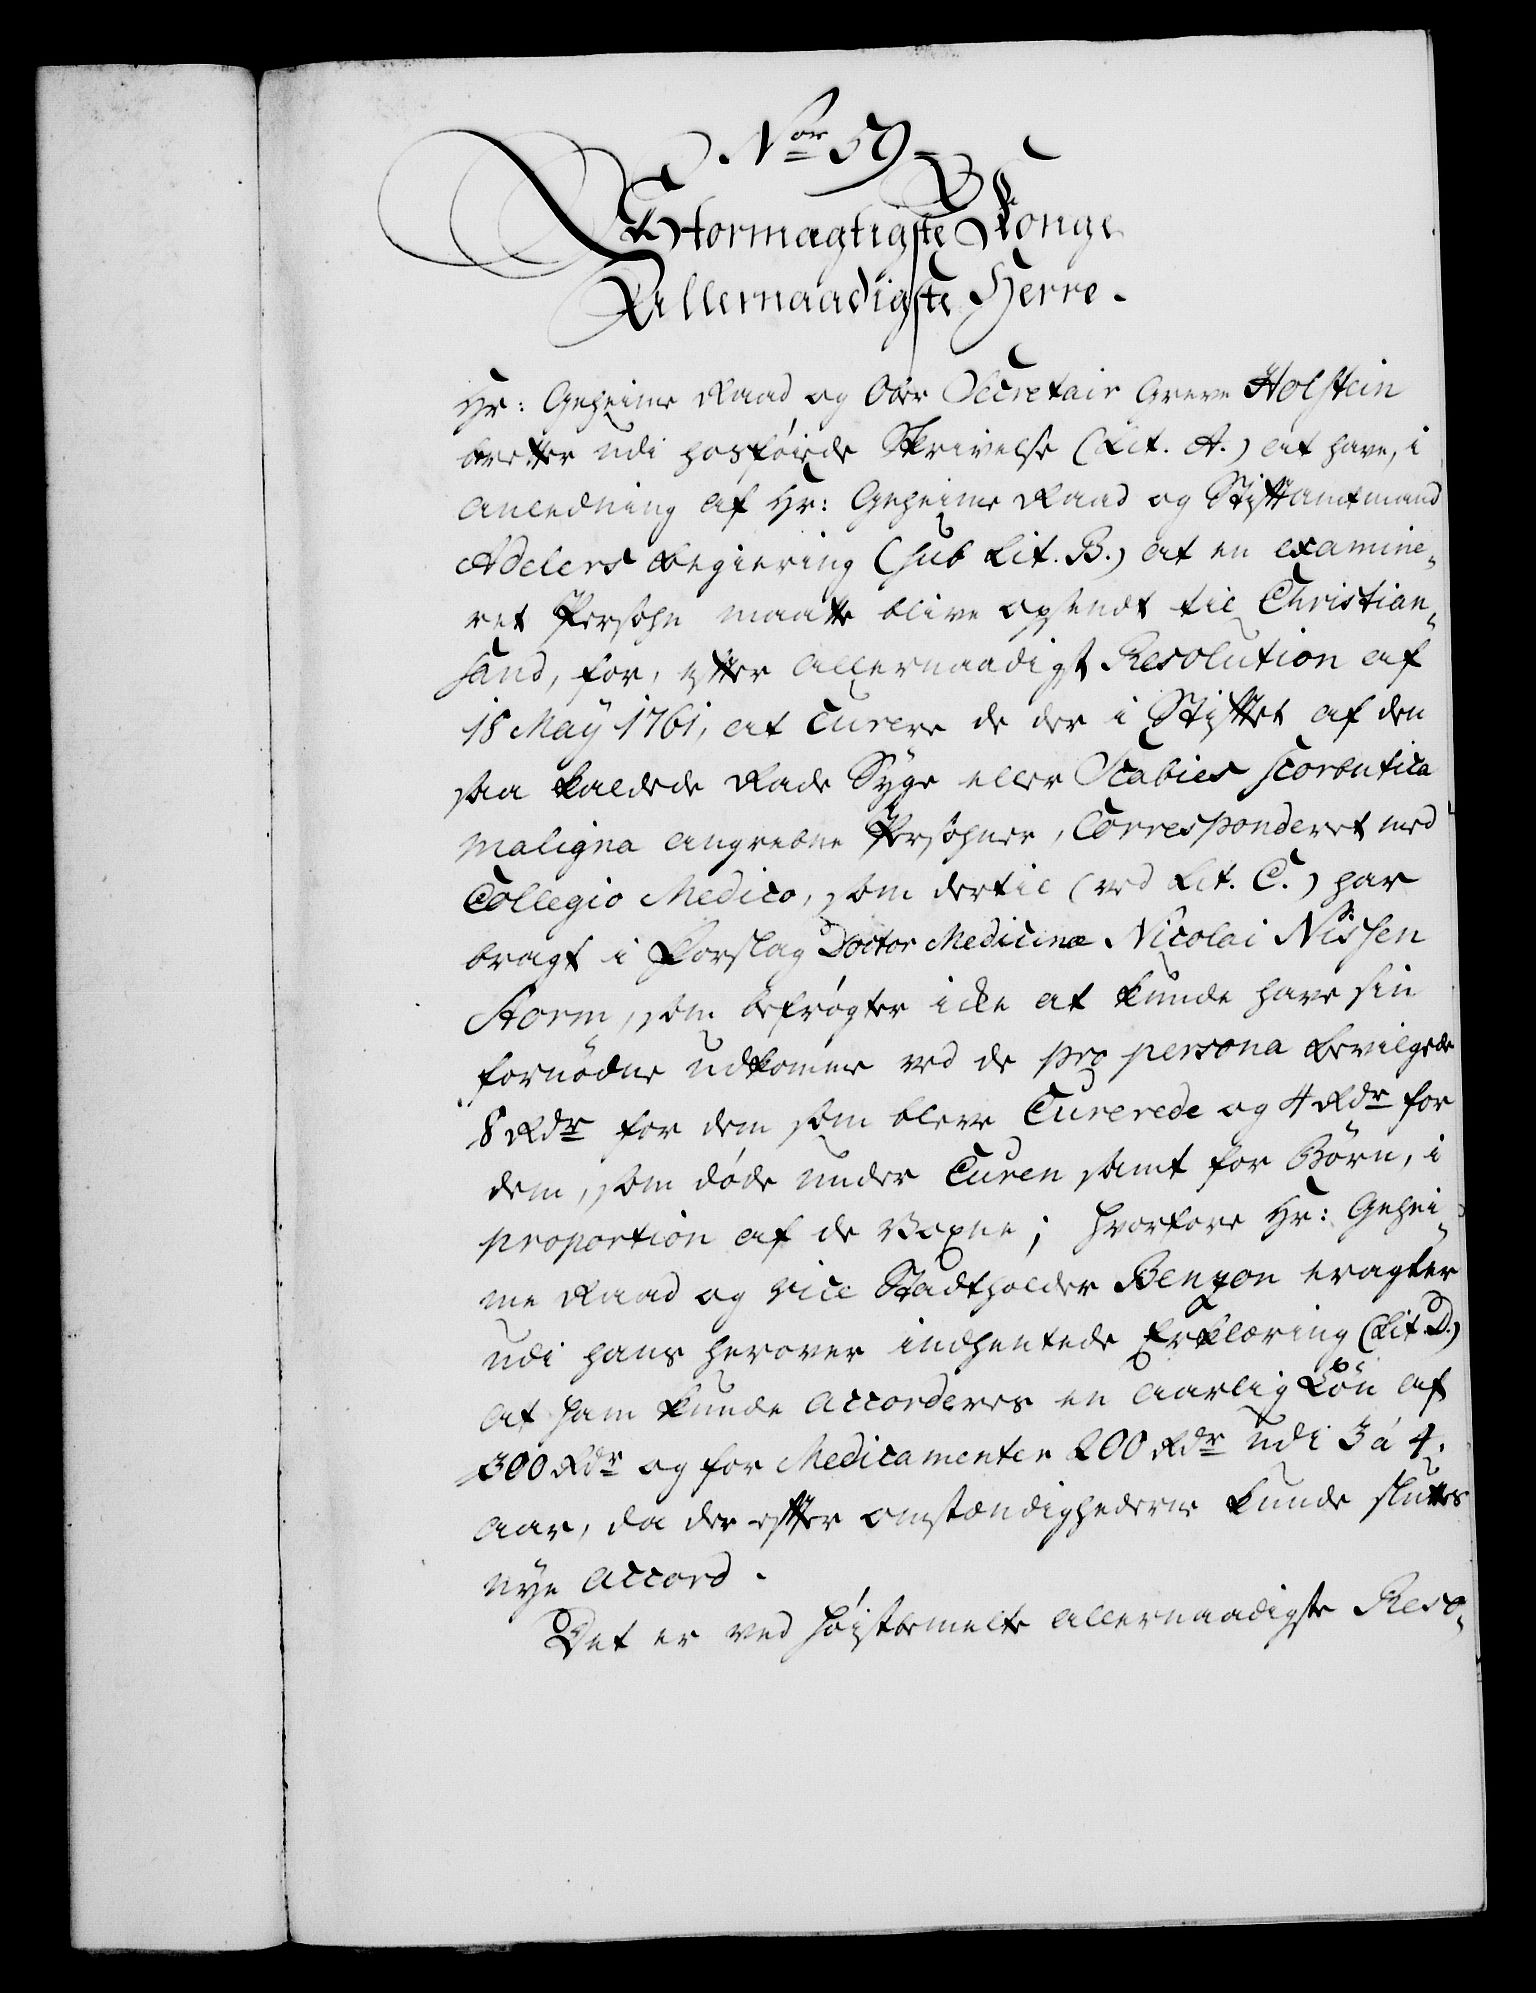 Nor 59
Stormægtigste Konge
Allernaadigste Herre.
Hr: Geheime Raad og Ober Secretair Greve Holstein
beretter udi hosføiede Skrivelse (Lit. A.) at have, i
Anledning af Hr: Geheime Raad og Stiftamtmand
Adelers Begiering (sub Lit. B.) at en examine-
ret Persohn maatte blive opsendt til Christian-
sand, for, efter allernaadigst Resolution af
18 Maÿ 1761, at Curere de der i Stiftet af den
saa kaldede Rade Syge eller Scabies scorbutica
maligna angrebne Persohner, Corresponderet med
Collegio Medico, som dertil (ved Lit. C.) har
bragt i Forslag Doctor Medicinæ Nicolai Nissen
Storm, som befrøgter icke at kunde have sin
fornødne udkomme ved de pro persona bevilgede
8 Rdr for dem som bleve Curerede og 4 Rdr for
dem, som døde under Curen samt for Børn, i
proportion af de Voxne; hvorfore Hr: Gehei-
me Raad og Vice Stadtholder Benzon eragter
udi hans herover indhentede Erklæring (Lit. D.)
at ham kunde accorderes en aarlig Løn af
300 Rdr og for Medicamenter 200 Rdr udi 3 á 4.
aar, da der efter omstændighederne kunde sluttes
nye accord.
Det er ved høistbemelte allernaadigste Reso-